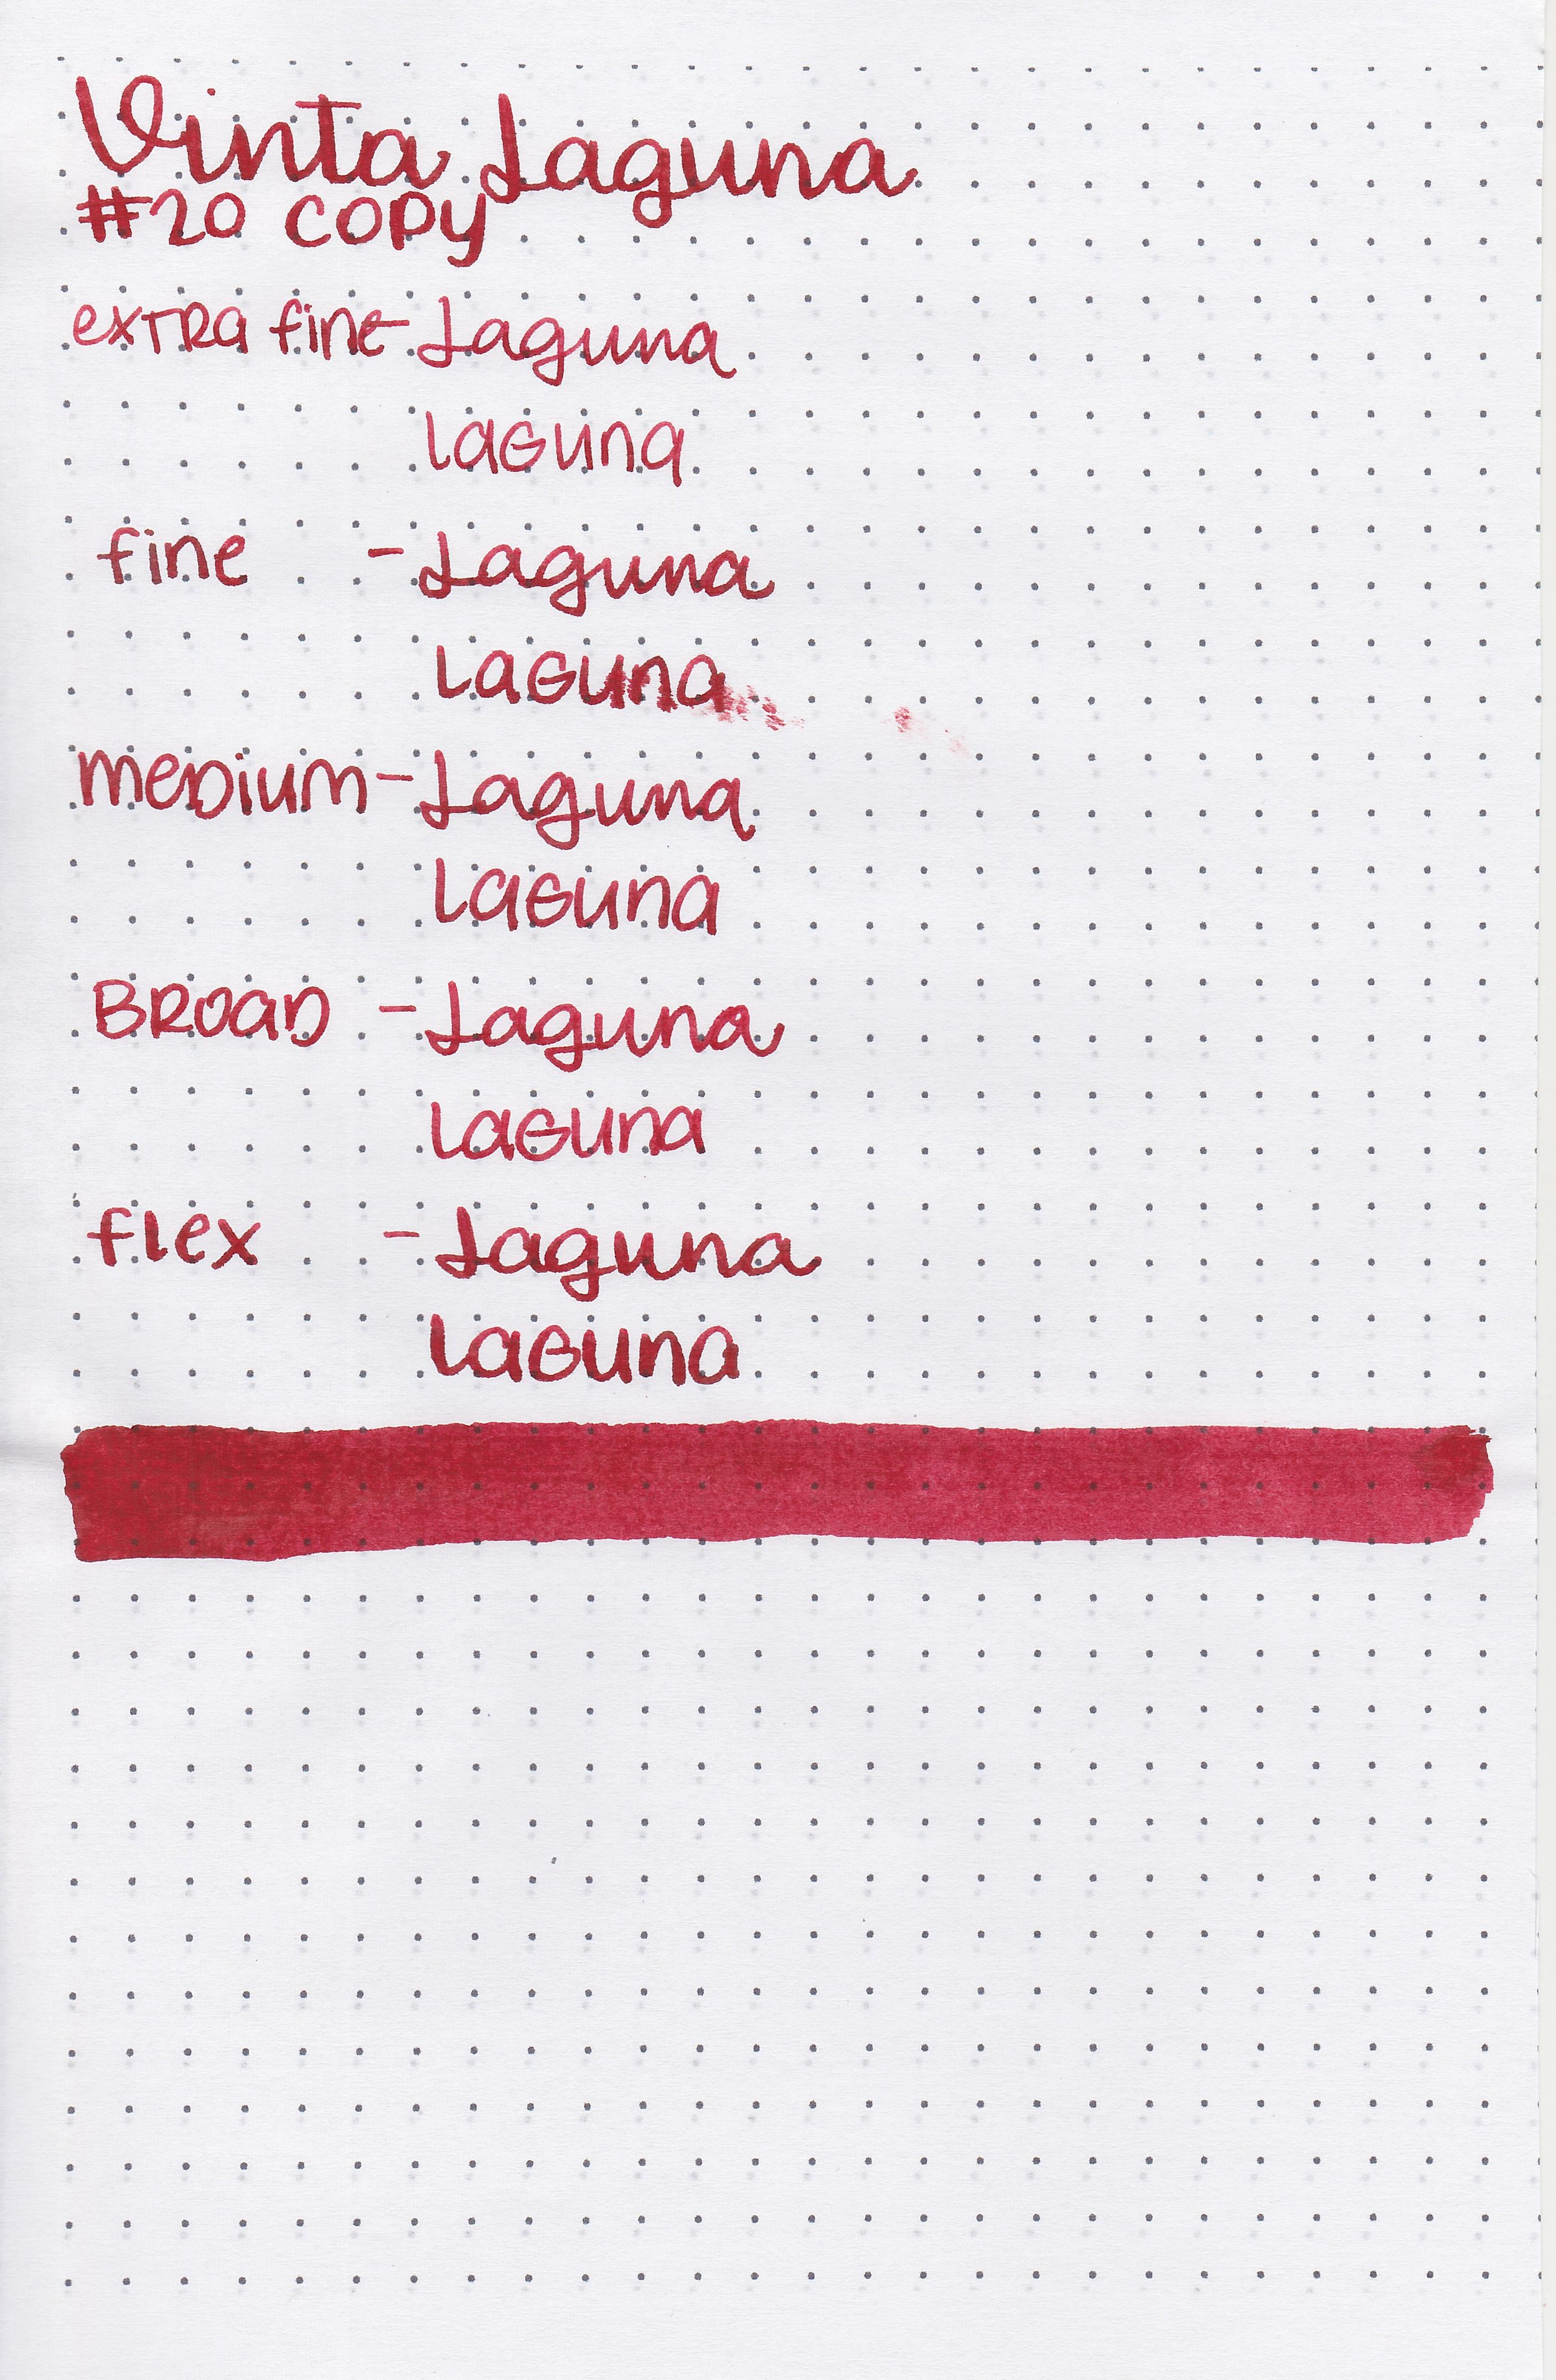 Vinta Laguna
#20 COPY
extra fine - Laguna
Laguna
fine - Laguna
Laguna
medium - Laguna
Laguna
Broad - Laguna
Laguna
flex - Laguna
Laguna